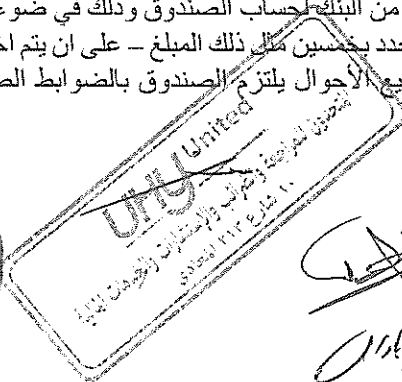 من البنك لحساب الصندوق وذلك في ضو
حدد بخمسين مثل ذلك المبلغ – على ان يتم ا
يع الأحوال يلتزم الصندوق بالضوابط الص
UHY United
المتحدون للمراجعة والضرائب والاستشارات والخدمات المالية
١٠ شارع ٢١٣ المعادي